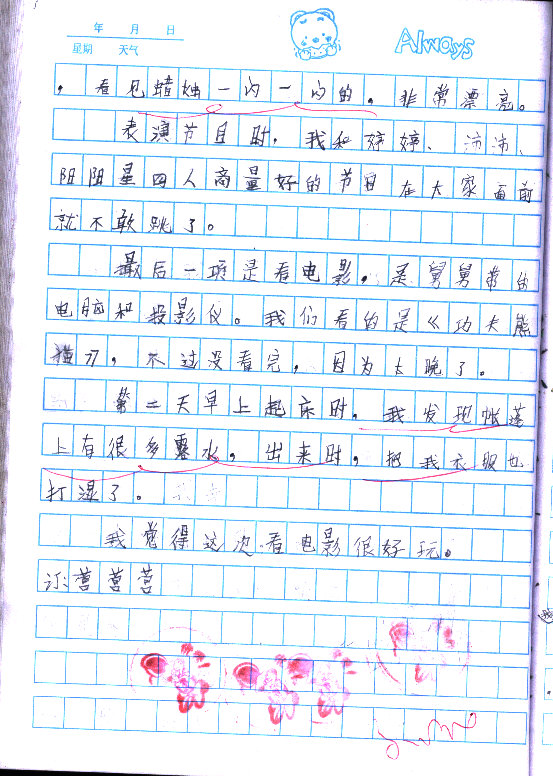 年 月 日
星期 天气
Always
，看见蜡烛一闪一闪的，非常漂亮。
表演节目时，我和婷婷、沛沛、
阳阳星四人商量好的节目在大家面前
就不敢跳了。
最后一项是看电影，是舅舅带的
电脑和投影仪。我们看的是《功夫熊
猫》，不过没看完，因为太晚了。
第二天早上起床时，我发现帐蓬
上有很多露水，出来时，把我衣服也
打湿了。
我觉得这次看电影很好玩。
订：营营营